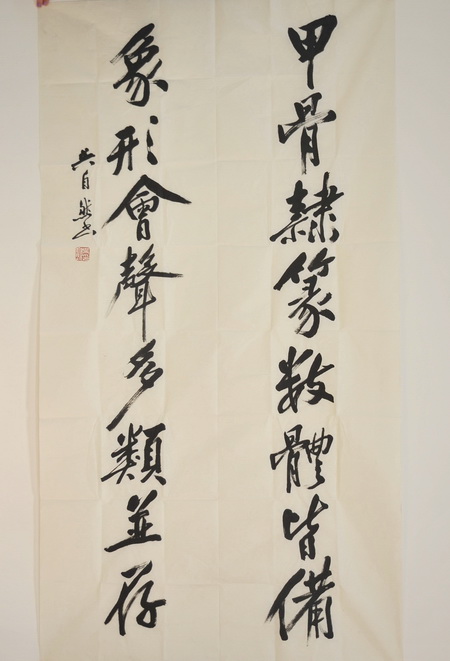 甲骨隸篆数體皆備
象形會聲多類並存
吴自然书